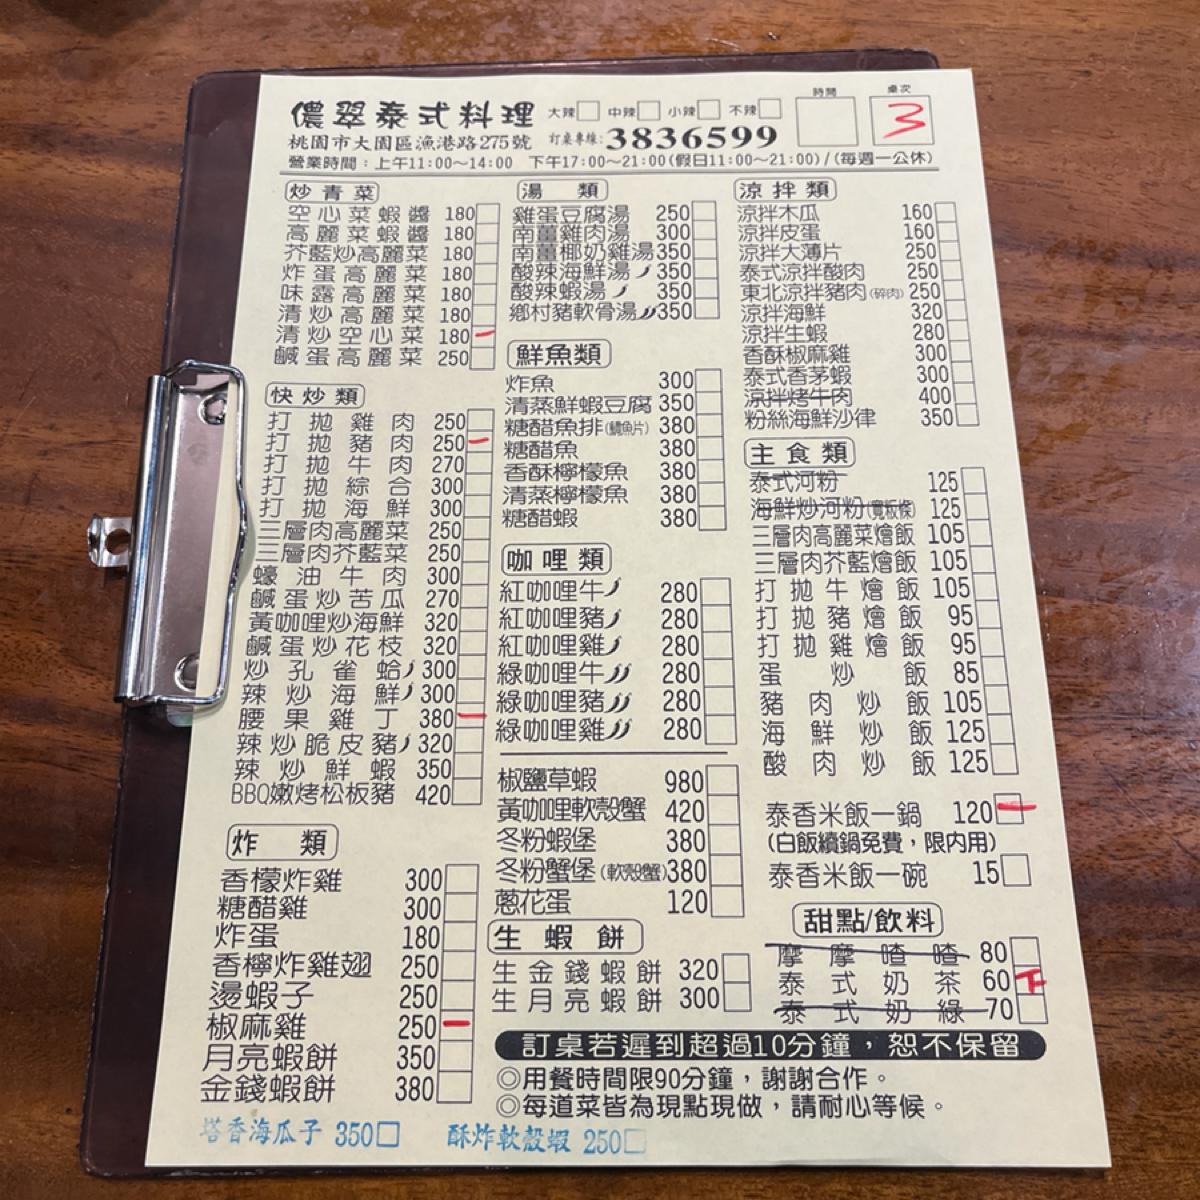 儂翠泰式料理 大辣□ 中辣□ 小辣□ 不辣□ 時間 桌次 3
桃園市大園區漁港路275號 訂桌專線: 3836599
營業時間：上午11:00～14:00 下午17:00～21:00(假日11:00～21:00)/(每週一公休)
炒青菜
空心菜蝦醬 180
高麗菜蝦醬 180
芥藍炒高麗菜 180
炸蛋高麗菜 180
味露高麗菜 180
清炒高麗菜 180
清炒空心菜 180 一
鹹蛋高麗菜 250
快炒類
打拋雞肉 250
打拋豬肉 250 一
打拋牛肉 270
打拋綜合 300
打拋海鮮 300
三層肉高麗菜 250
三層肉芥藍菜 250
蠔油牛肉 300
鹹蛋炒苦瓜 270
黃咖哩炒海鮮 320
鹹蛋炒花枝 320
炒孔雀蛤 300
辣炒海鮮 300
腰果雞丁 380 一
辣炒脆皮豬 320
辣炒鮮蝦 350
BBQ嫩烤松板豬 420
炸類
香檬炸雞 300
糖醋雞 300
炸蛋 180
香檸炸雞翅 250
燙蝦子 250
椒麻雞 250 一
月亮蝦餅 350
金錢蝦餅 380
塔香海瓜子 350□
湯類
雞蛋豆腐湯 250
南薑雞肉湯 300
南薑椰奶雞湯 350
酸辣海鮮湯 350
酸辣蝦湯 350
鄉村豬軟骨湯 350
鮮魚類
炸魚 300
清蒸鮮蝦豆腐 350
糖醋魚排(鯛魚片) 380
糖醋魚 380
香酥檸檬魚 380
清蒸檸檬魚 380
糖醋蝦 380
咖哩類
紅咖哩牛 280
紅咖哩豬 280
紅咖哩雞 280
綠咖哩牛 280
綠咖哩豬 280
綠咖哩雞 280
椒鹽草蝦 980
黃咖哩軟殼蟹 420
冬粉蝦堡 380
冬粉蟹堡(軟殼蟹) 380
蔥花蛋 120
生蝦餅
生金錢蝦餅 320
生月亮蝦餅 300
酥炸軟殼蝦 250□
涼拌類
涼拌木瓜 160
涼拌皮蛋 160
涼拌大薄片 250
泰式涼拌酸肉 250
東北涼拌豬肉(碎肉) 250
涼拌海鮮 320
涼拌生蝦 280
香酥椒麻雞 300
泰式香茅蝦 300
涼拌烤牛肉 400
粉絲海鮮沙律 350
主食類
泰式河粉 125
海鮮炒河粉(寬板條) 125
三層肉高麗菜燴飯 105
三層肉芥藍燴飯 105
打拋牛燴飯 105
打拋豬燴飯 95
打拋雞燴飯 95
蛋炒飯 85
豬肉炒飯 105
海鮮炒飯 125
酸肉炒飯 125
泰香米飯一鍋 120 一
(白飯續鍋免費，限內用)
泰香米飯一碗 15
甜點/飲料
摩摩喳喳 80
泰式奶茶 60 下
泰式奶綠 70
訂桌若遲到超過10分鐘，恕不保留
◎用餐時間限90分鐘，謝謝合作。
◎每道菜皆為現點現做，請耐心等候。